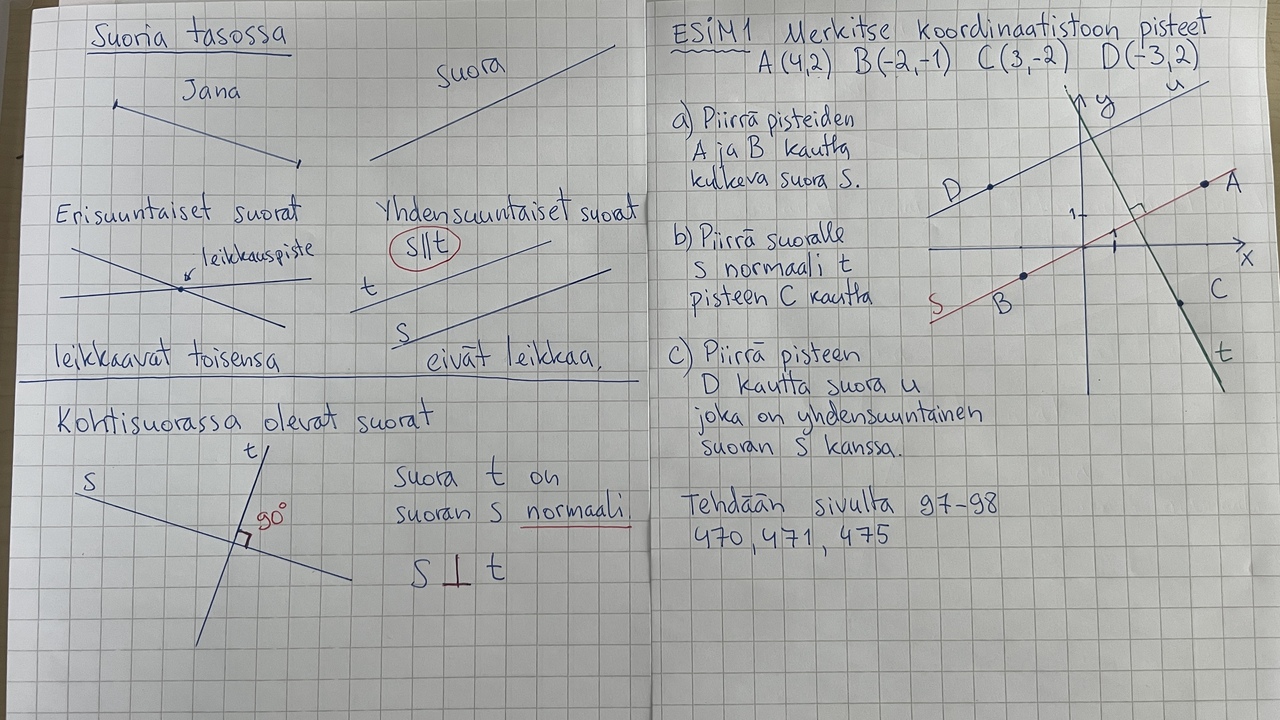 Suoria tasossa
Jana
suora
Erisuuntaiset suorat
leikkauspiste
leikkaavat toisensa
Yhdensuuntaiset suorat
s||t
t
s
eivät leikkaa.
Kohtisuorassa olevat suorat
s
t
90°
suora t on
suoran s normaali.
s ⊥ t
ESIM1 Merkitse koordinaatistoon pisteet
A(4,2) B(-2,-1) C(3,-2) D(-3,2)
a) Piirrä pisteiden
A ja B kautta
kulkeva suora s.
b) Piirrä suoralle
s normaali t
pisteen C kautta
c) Piirrä pisteen
D kautta suora u
joka on yhdensuuntainen
suoran s kanssa.
y
u
D
A
1
1
x
s
B
C
t
Tehdään sivulta 97-98
470, 471, 475